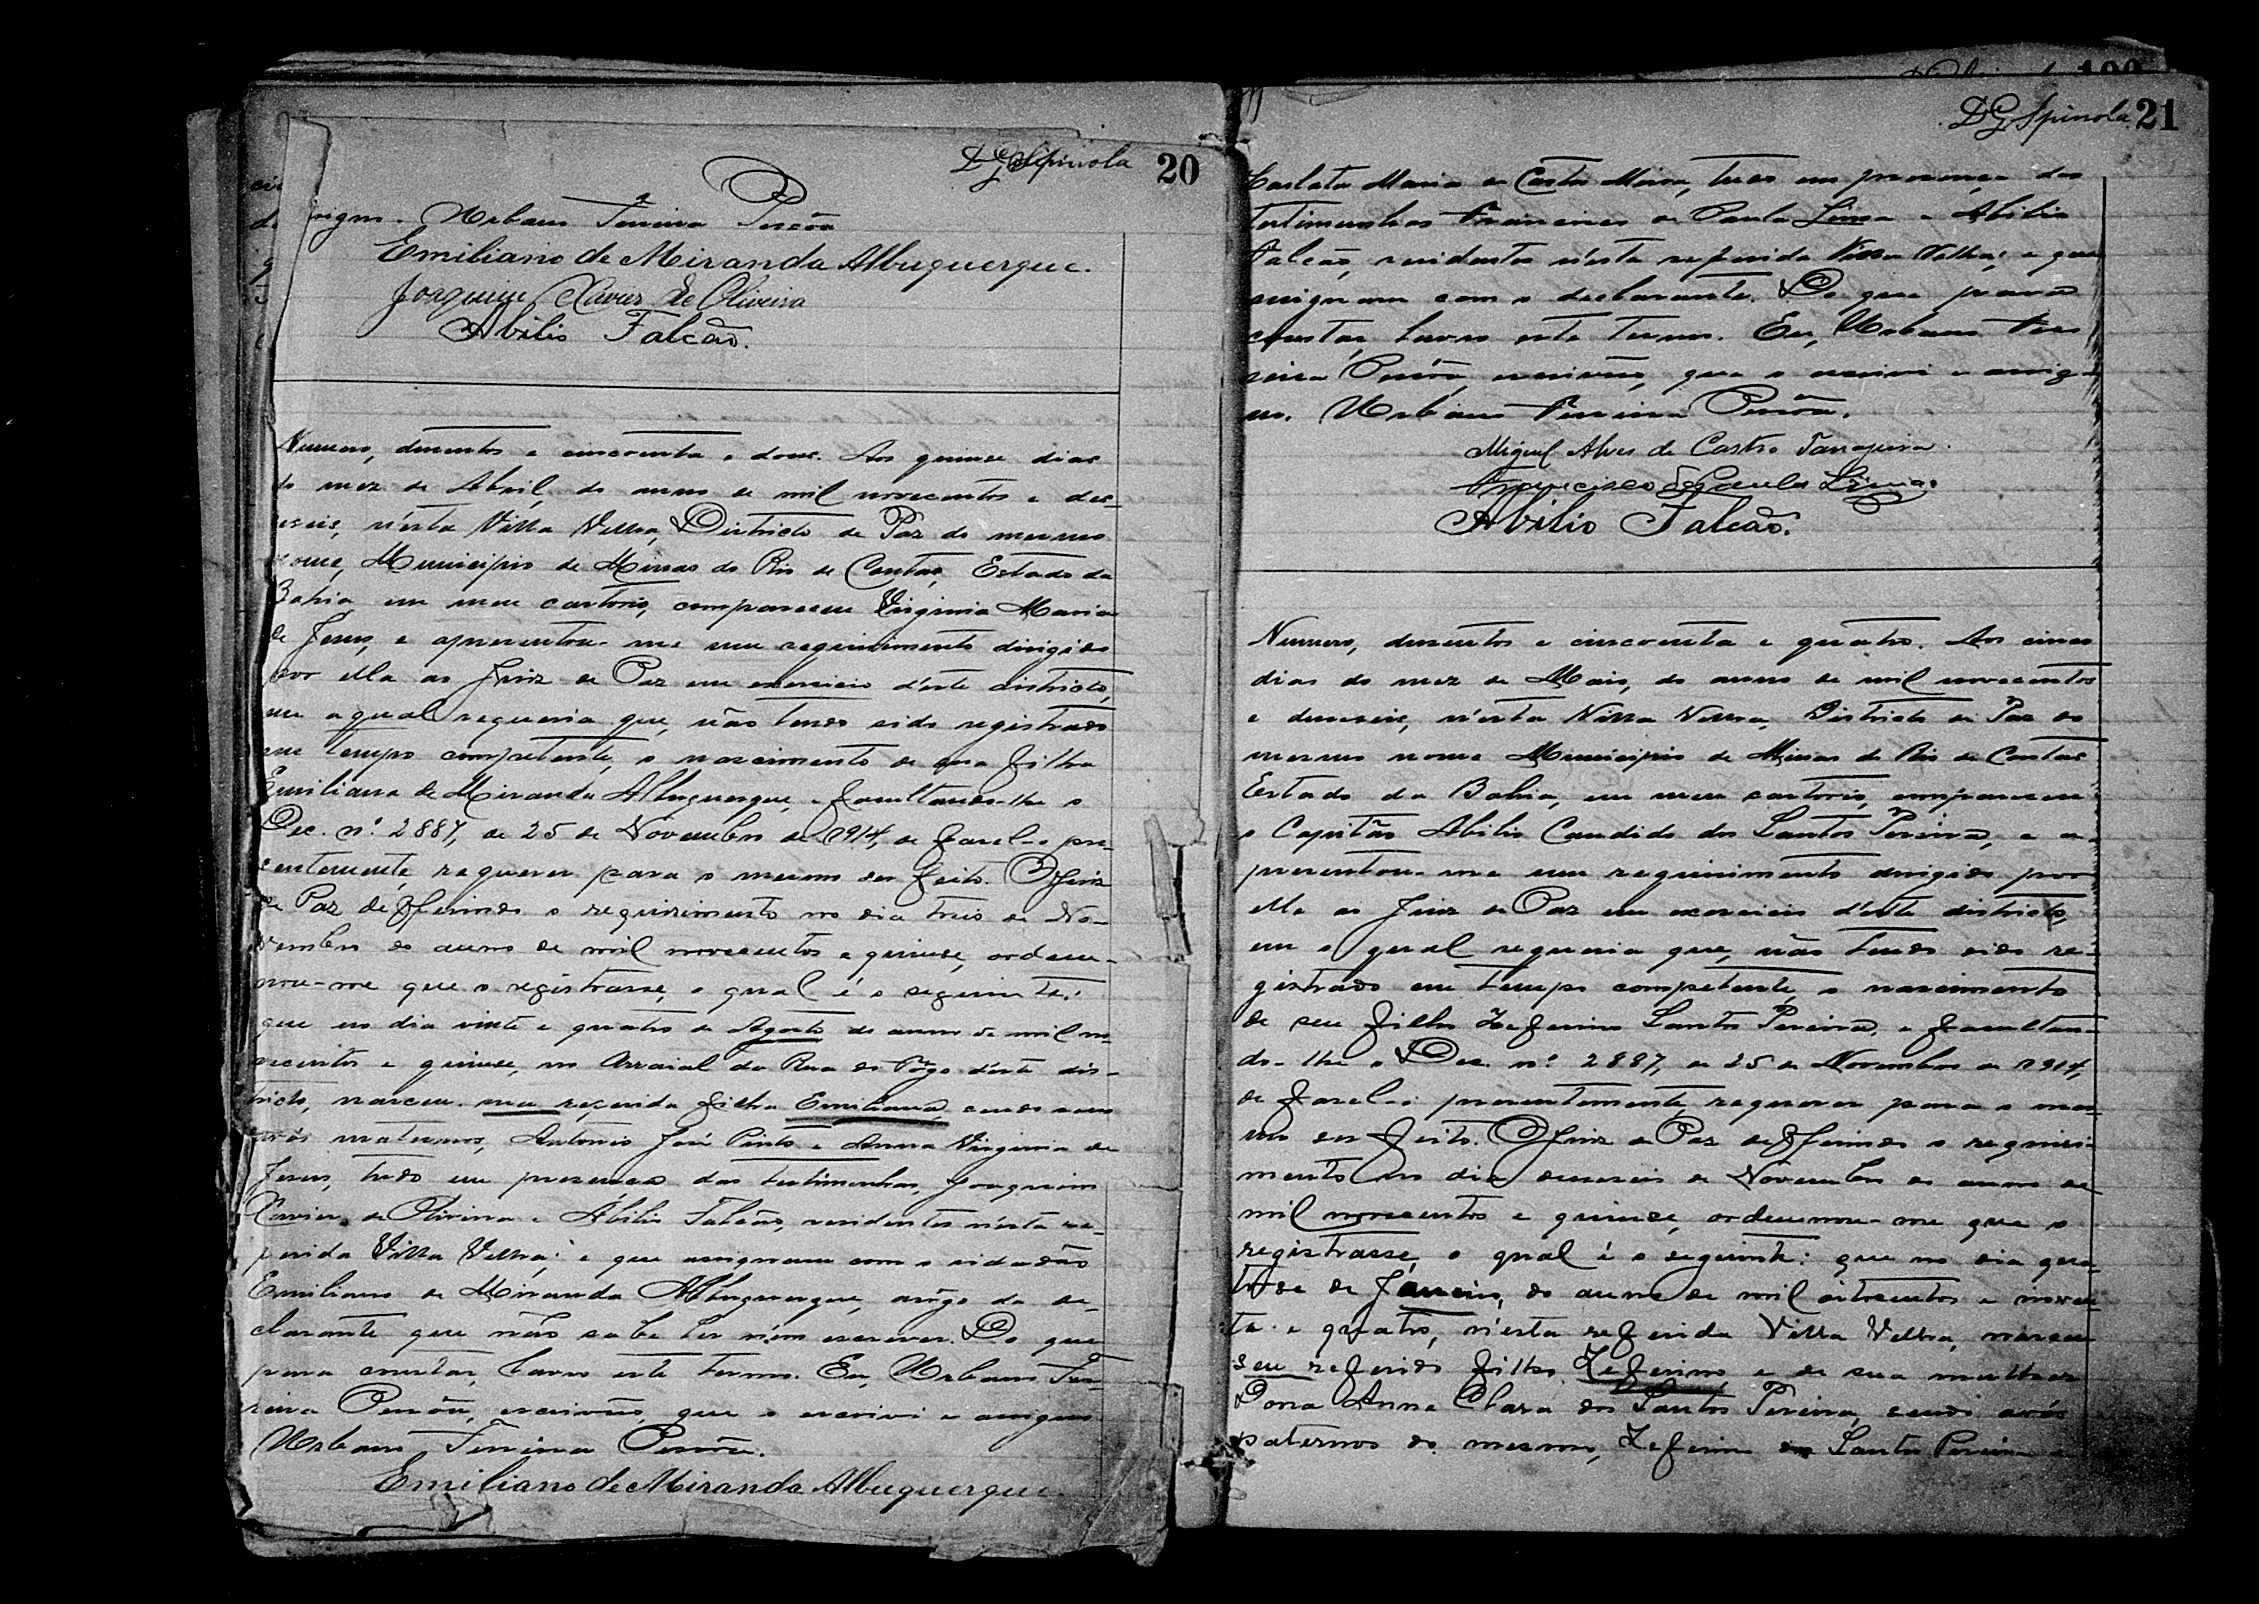 D G Spinola 20
signo. Urbano Ferreira Pessôa
Emiliano de Miranda Albuquerque.
Joaquim Xavier de Oliveira
Abilio Falcão.
Numero, dusentos e cincoenta e dous. Aos quinse dias
do mez de Abril, do anno de mil novecentos e des-
eseis, n'esta Villa Velha, Districto de Paz do mesmo
nome, Municipio de Minas do Rio de Contas, Estado da
Bahia, em meu cartorio, compareceu Virginia Maria
de Jesus, e apresentou-me um requerimento dirigido
por ella ao Juiz de Paz em exercicio d'este districto,
em o qual requeria que, não tendo sido registrado
em tempo competente, o nascimento de sua filha
Emiliana de Miranda Albuquerque, e facultando-lhe o
Dec. nº 2887, de 25 de Novembro de 1914, de fasel-o pre-
sentemente, requerer para o mesmo ser feito. O Juiz
de Paz defferindo o requerimento no dia tres de No-
vembro do anno de mil novecentos e quinse, ordem-
nou-me que o registrasse, o qual é o seguinte:
que no dia vinte e quatro de Agosto do anno de mil no-
vecentos e quinse, no Arraial da Rua do Fôgo d'este dis-
tricto, nasceu sua referida filha Emiliana, sendo seus
avós maternos, Antonio José Pinto e Anna Virginia de
Jesus, tudo em presença das testimunhas, Joaquim
Xavier de Oliveira e Abilio Falcão, residentes n'esta re-
ferida Villa Velha; e que assignam com o cidadão
Emiliano de Miranda Albuquerque, a rôgo da de-
clarante que não sabe ler nem escrever. Do que
para constar, lavro este termo. Eu, Urbano Fer-
reira Pessôa, escrivão, que o escrivi e assigno
Urbano Ferreira Pessôa.
Emiliano de Miranda Albuquerque.
D G Spinola. 21
Maria de Castro Meira, tudo em presença das
testimunhas Francisco de Paula Lima e Abilio
Falcão, residentes n'esta referida Villa Velha; e que
assignam com o declarante. Do que para
constar, lavro este termo. Eu, Urbano Fer-
reira Pessôa, escrivão, que o escrivi e assig-
no. Urbano Ferreira Pessôa.
Miguel Alves de Castro Tanajura.
Francisco de Paula Lima
Abilio Falcão.
Numero, dusentos e cincoenta e quatro. Aos cinco
dias do mez de Maio, do anno de mil novecentos
e deseseis, n'esta Villa Velha, Districto de Paz do
mesmo nome Municipio de Minas do Rio de Contas
Estado da Bahia, em meu cartorio, compareceu
o Capitão Abilio Candido dos Santos Pereira, e a-
presentou-me um requerimento dirigido por
elle ao Juiz de Paz em exercicio d'este districto,
em o qual requeria que, não tendo sido re-
gistrado em tempo competente, o nascimento
de seu filho Zeferino Santos Pereira, e facultan-
do-lhe o Dec. nº 2887, de 25 de Novembro de 1914,
de fasel-o presentemente, requerer para o mes-
mo ser feito. O Juiz de Paz defferindo o requeri-
mento no dia deseseis de Novembro do anno de
mil novecentos e quinse, ordemnou-me que o
registrasse, o qual é o seguinte: que no dia qua-
torse de Janeiro, do anno de mil oitocentos e noven-
ta e quatro, n'esta referida Villa Velha, nasceu
seu referido filho Zeferino, e de sua mulher
Dona Anna Clara dos Santos Pereira, sendo avós
paternos do mesmo, Zeferino dos Santos Pereira e